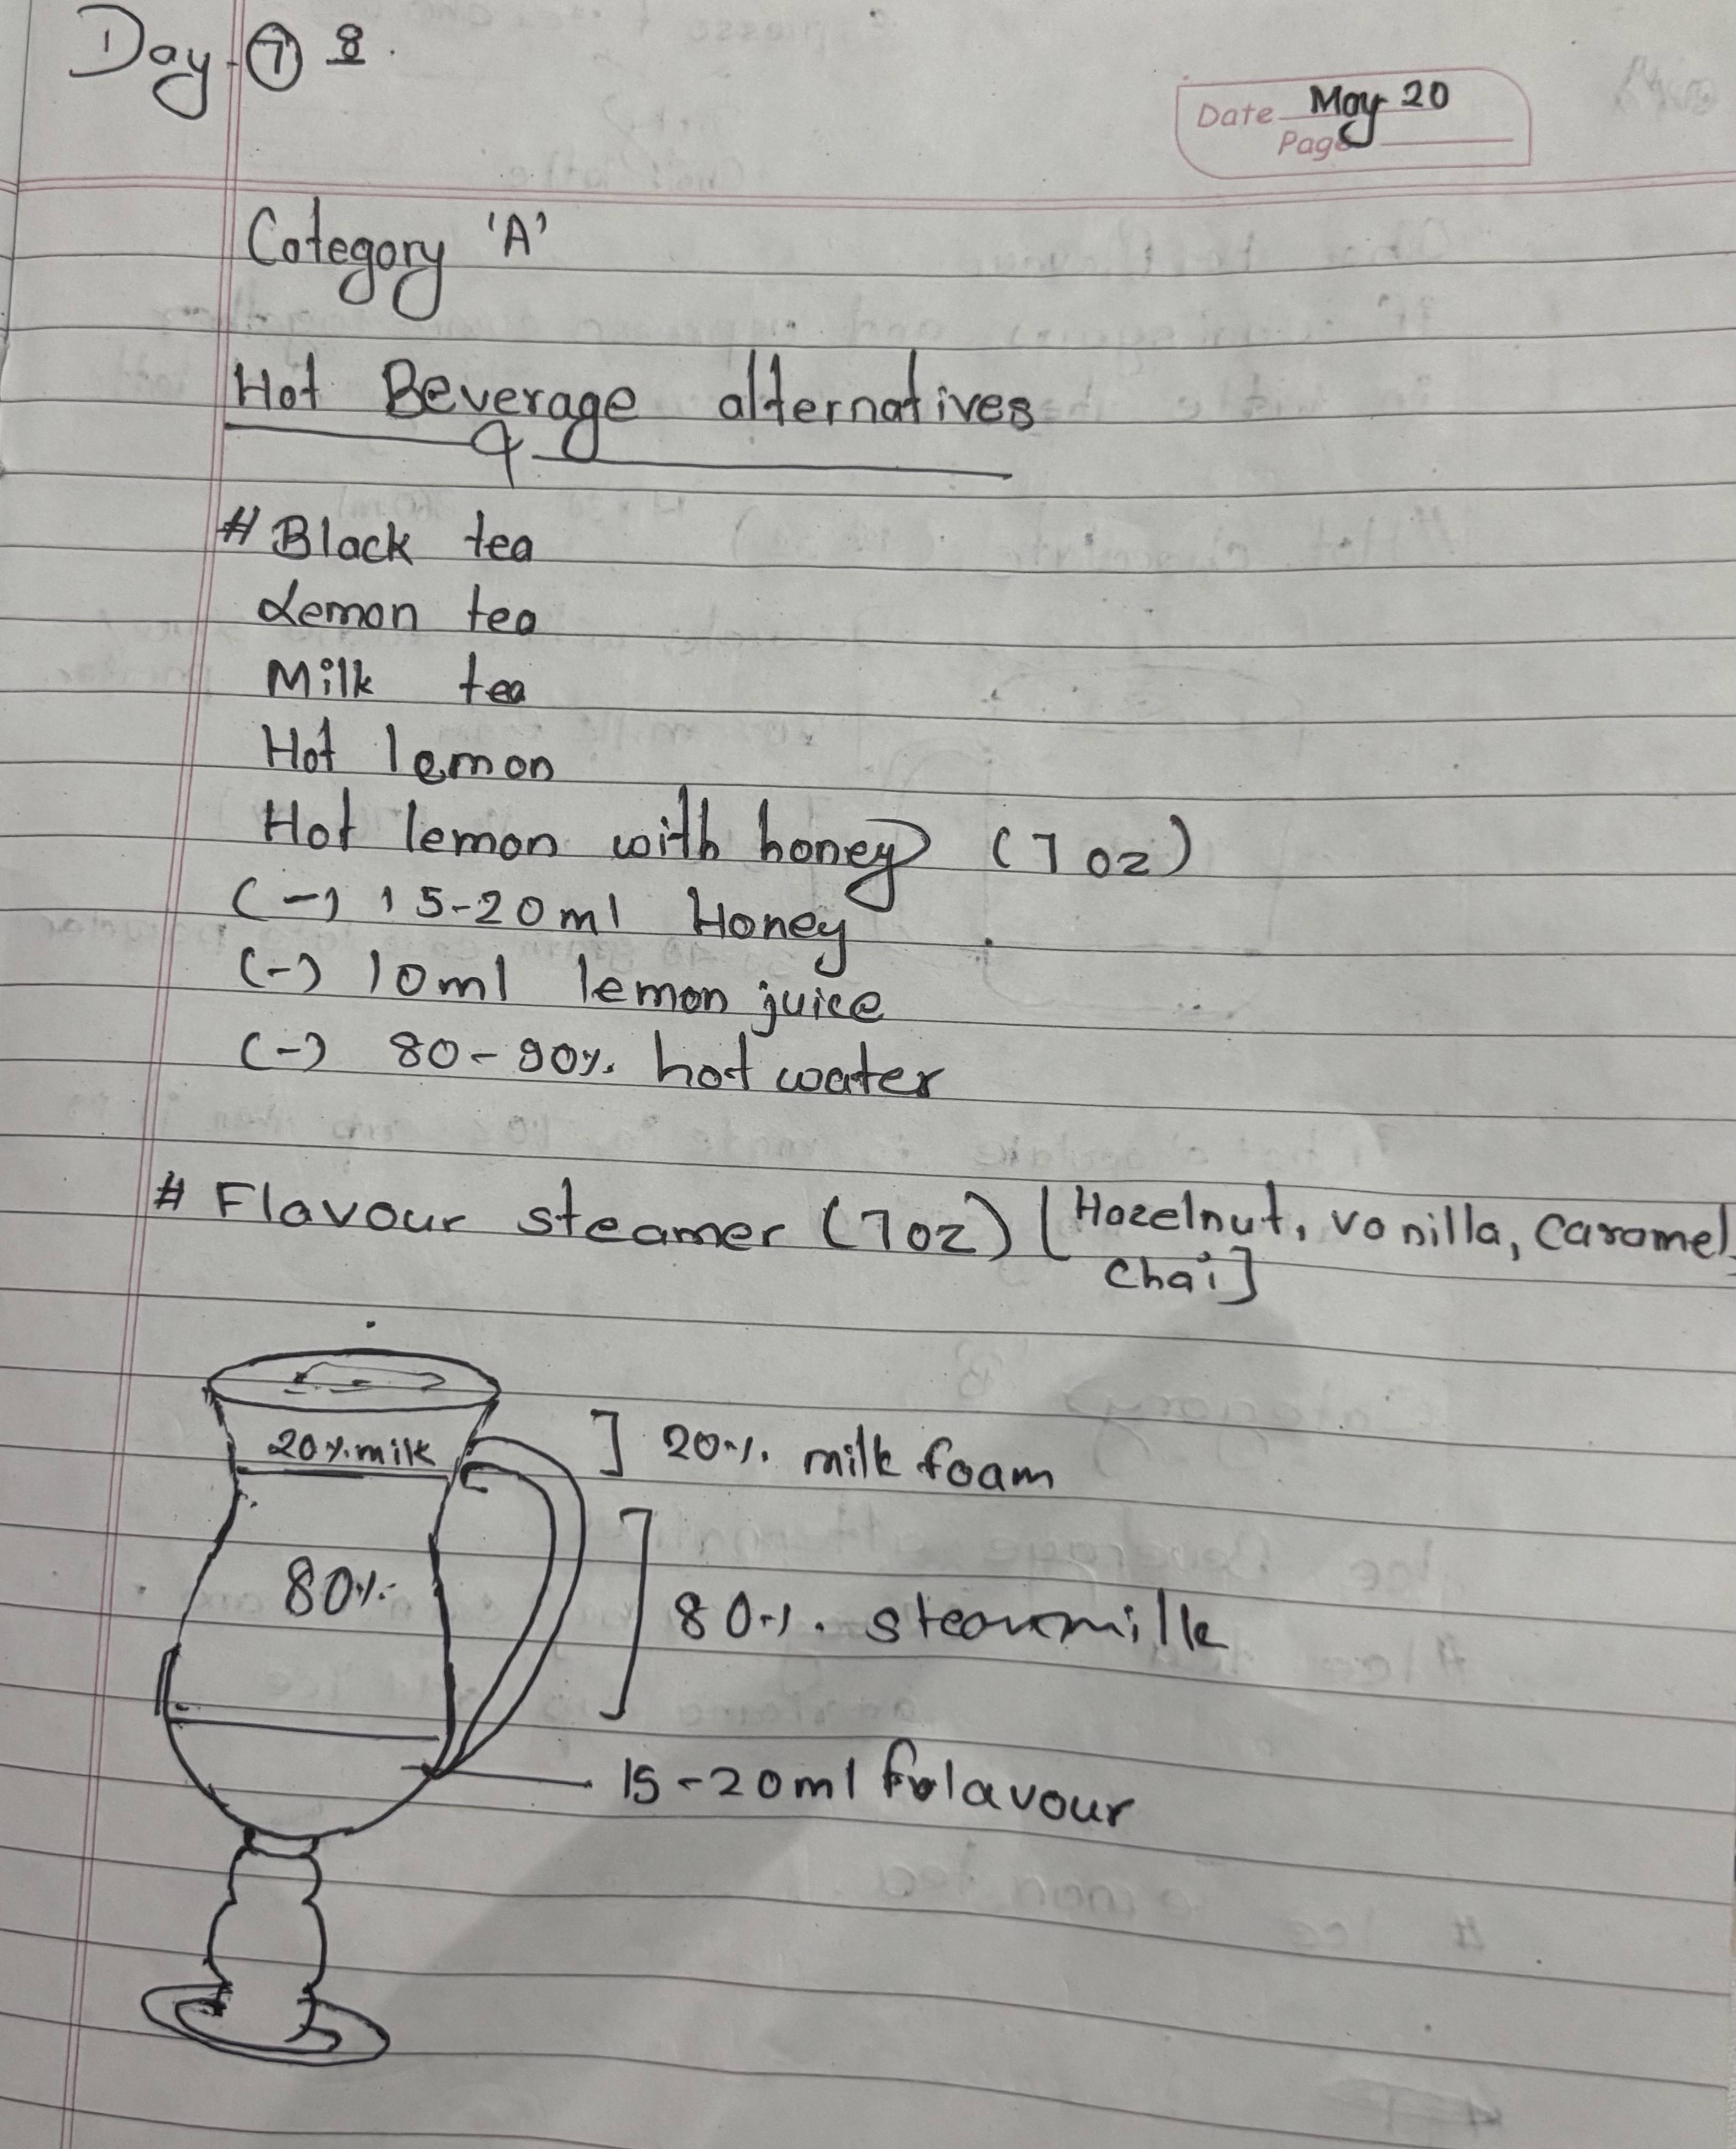 Day - 7 8.
Date May 20
Page
Category 'A'
Hot Beverage alternatives
# Black tea
Lemon tea
Milk tea
Hot lemon
Hot lemon with honey (7 oz)
(-) 15-20ml Honey
(-) 10ml lemon juice
(-) 80-90% hot water
# Flavour steamer (7oz) [Hazelnut, vanilla, caramel,
chai]
20% milk
] 20% milk foam
80%
] 80%. steam milk
15-20ml flavour